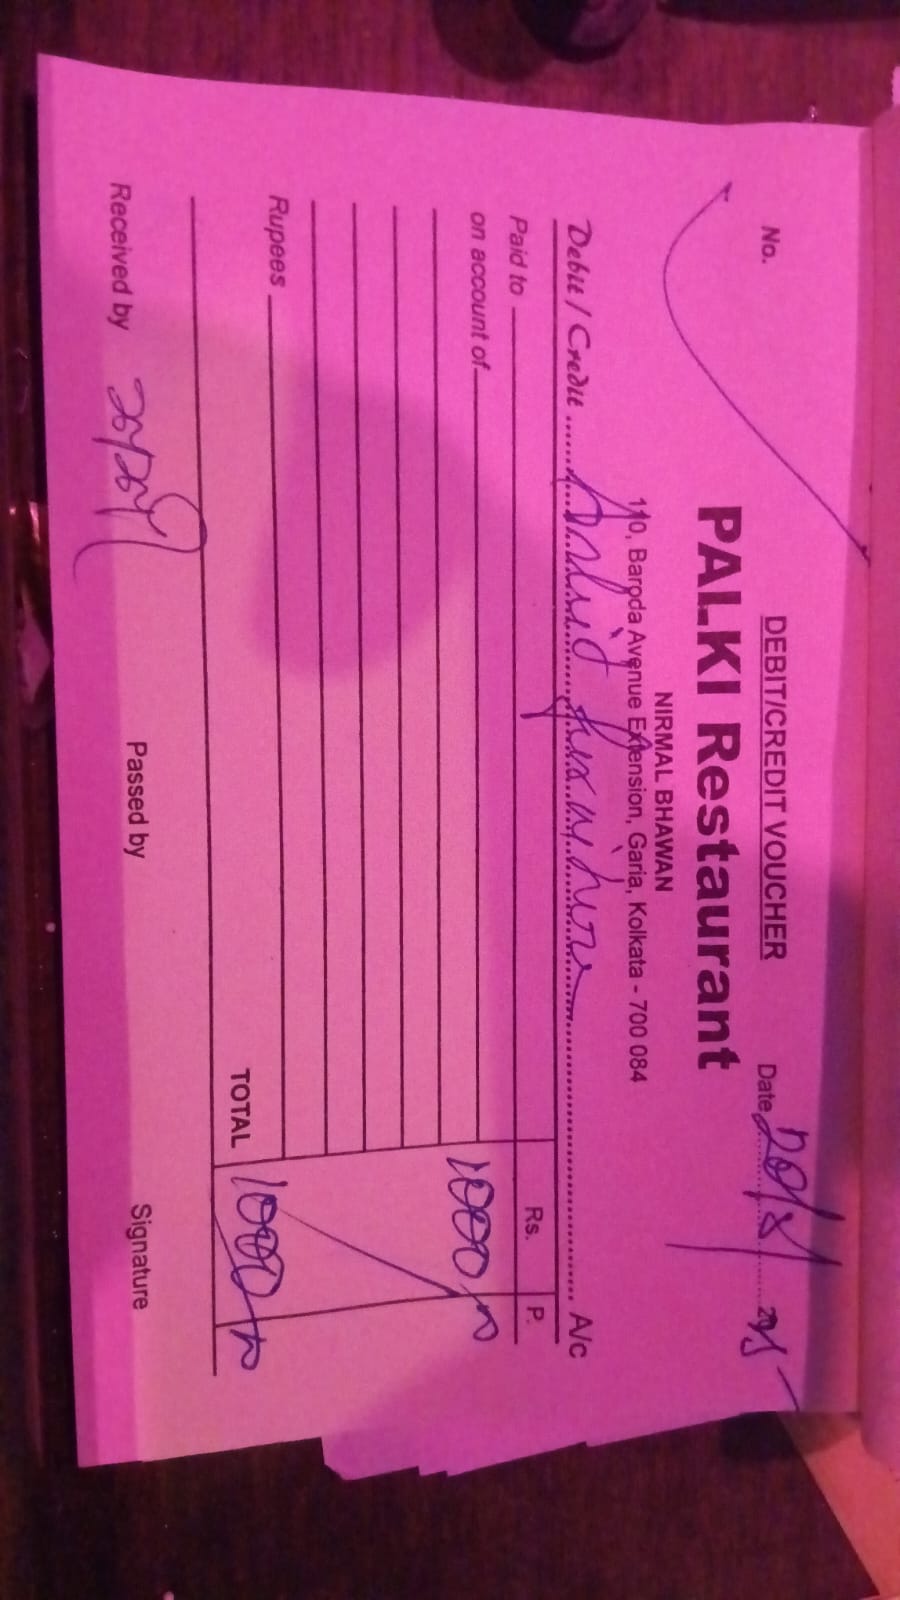 DEBIT/CREDIT VOUCHER
No.
Date
PALKI Restaurant
NIRMAL BHAWAN
110, Baroda Avenue Extension, Garia, Kolkata - 700 084
Debit / Credit A/c
Paid to Rs. P.
on account of 1000/-
Rupees
TOTAL 1000/-
Received by Passed by Signature